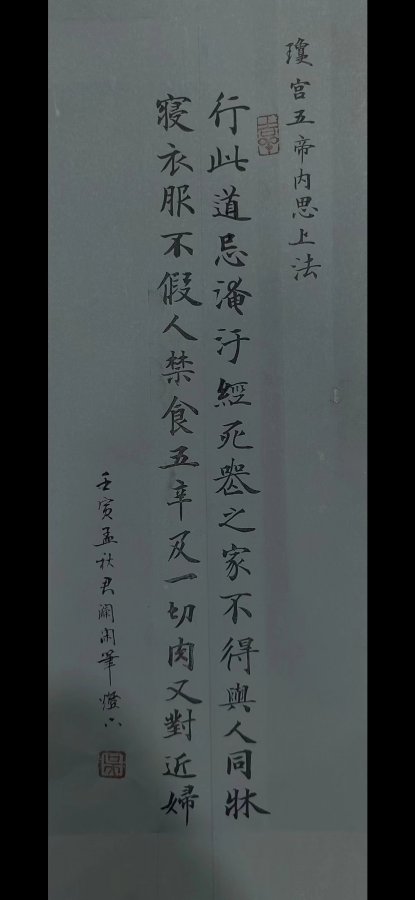 瓊宮五帝内思上法
行此道忌淹汙經死喪之家不得與人同牀
寢衣服不假人禁食五辛及一切肉又對近婦
壬寅孟秋君瀾閑筆燈下